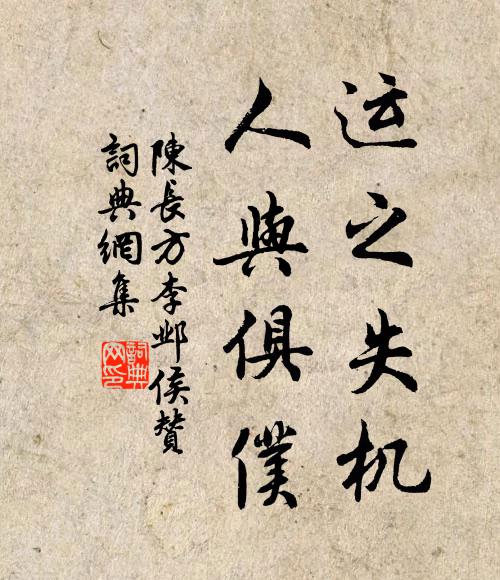 运之失机
人與俱僕
陳長方李邺侯贊
詞典網集
詞典
网印